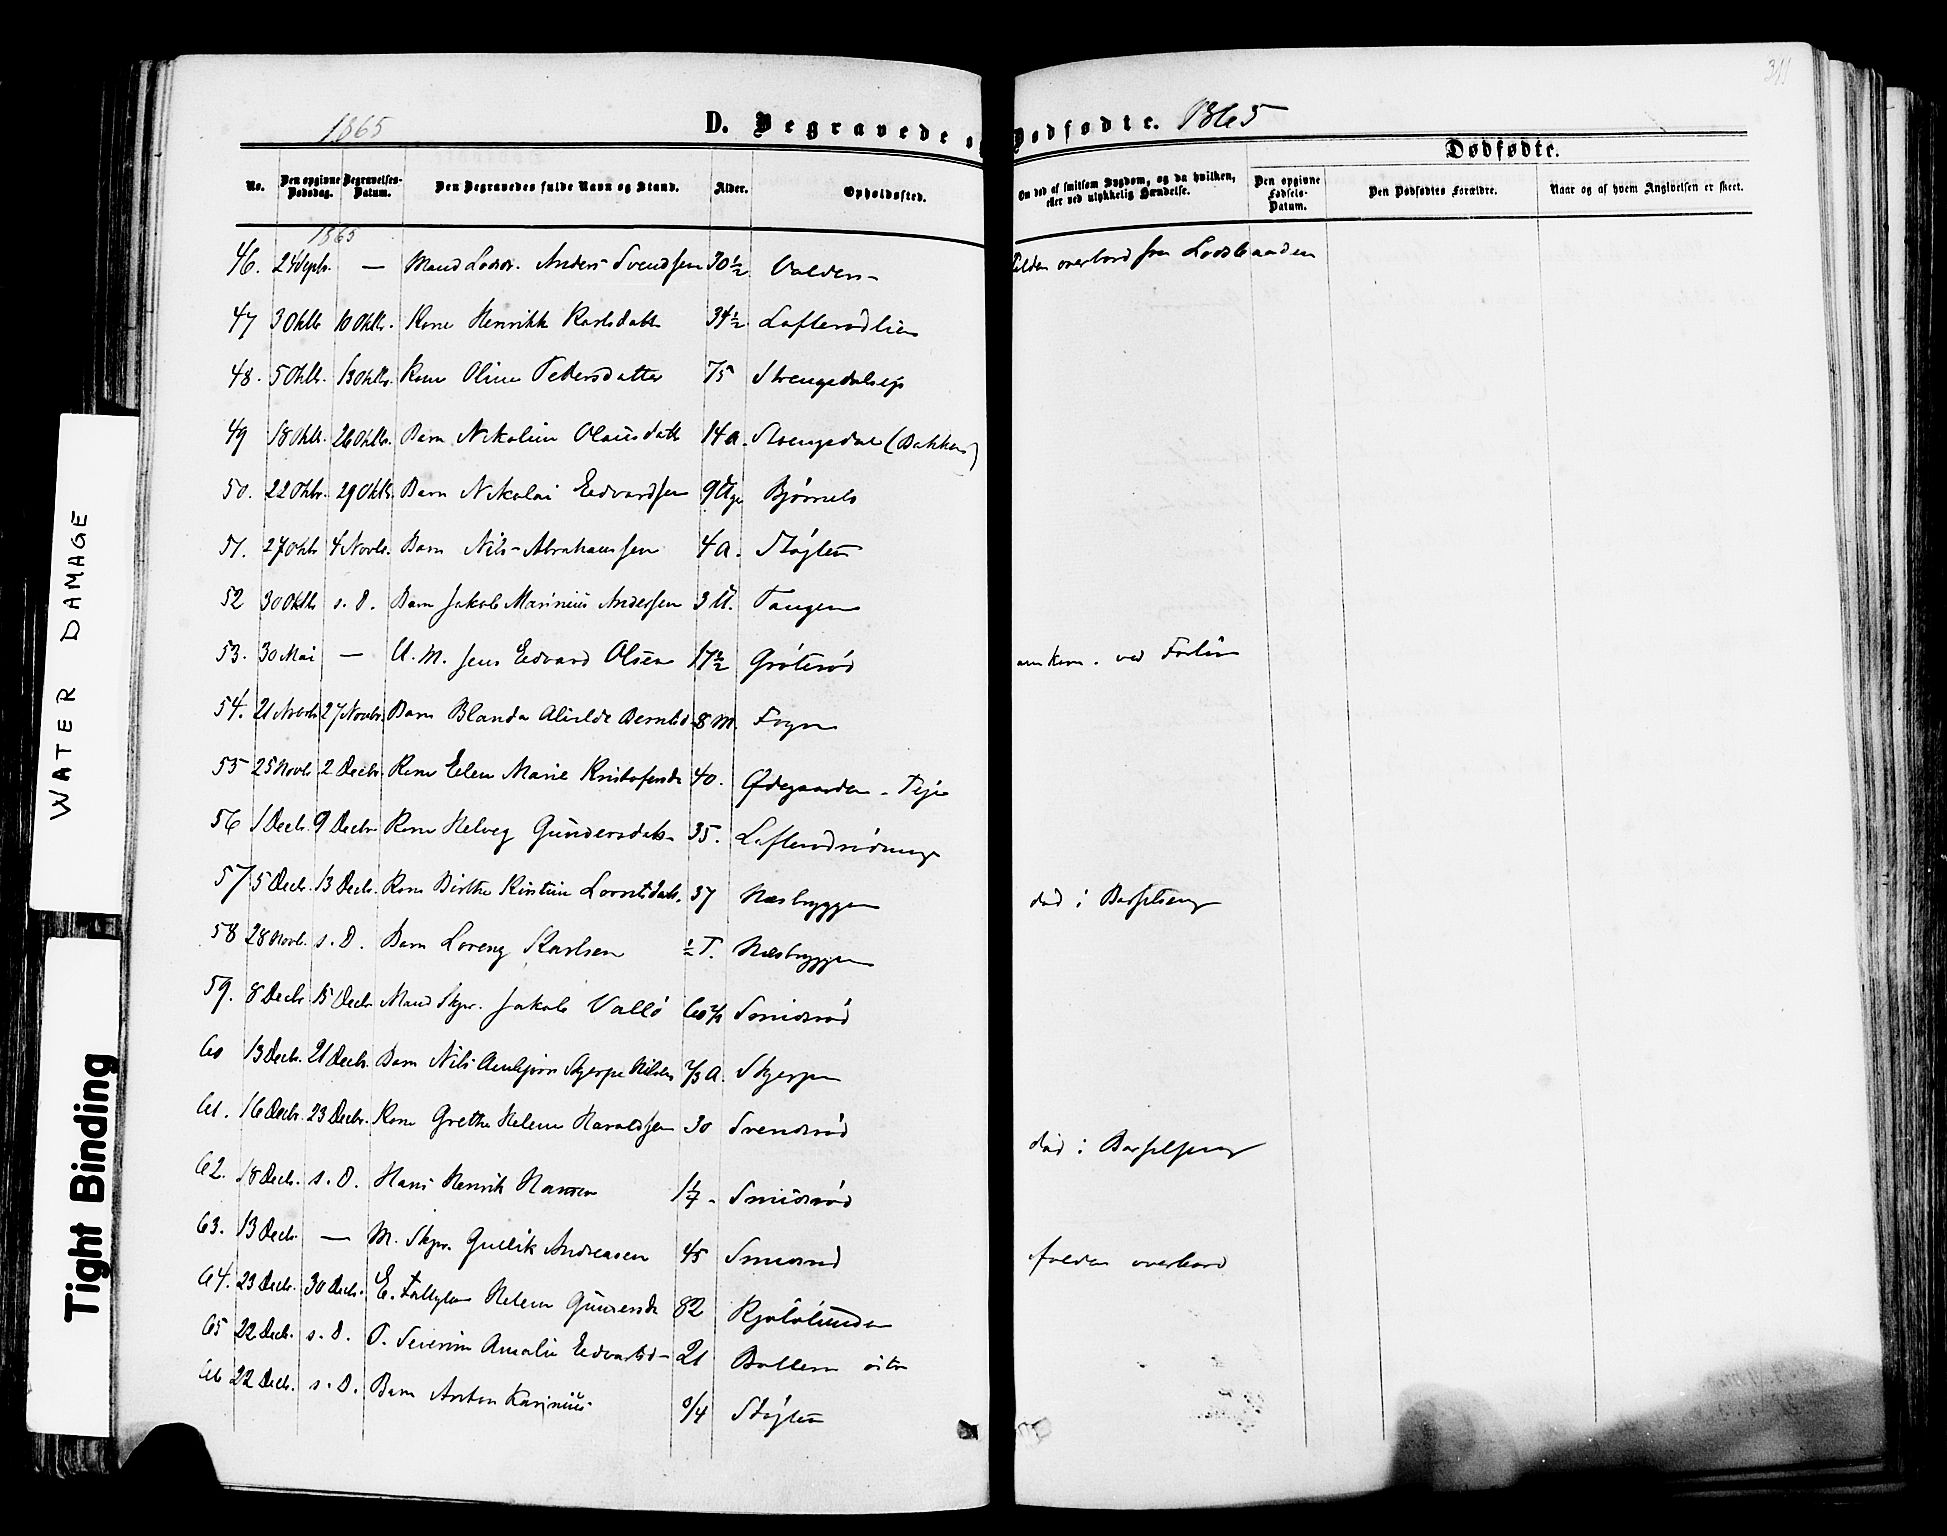 311
1865 D. Begravede o Dødfødte. 1865
Dødfødte.
No. Den opgivne Dødsdag. Begravelses-Datum. Den Begravedes fulde Navn og Stand. Alder. Opholdssted. Om død af smitsom Sygdom, og da hvilken, eller ved ulykkelig Hændelse. Den opgivne Fødsels-Datum. Den Dødfødtes Forældre. Naar og af hvem Angivelsen er skeet.
1865
46. 24 Septr. — Mand Lods Anders Svendsen 30½ Valder falden overbord fra Lodsbaaden
47 3 Oktb 10 Oktb. Kone Henrikk Karlsdatt 34½ Lofterødlien
48. 5 Oktb. 13 Oktb. Kone Oline Pettersdatter 75 Strengsdalseje
49 18 Oktb. 26 Oktb. Barn Nikoline Olausdatt 14 a. Strengsdal (Bakken)
50. 22 Oktbr. 29 Oktb. Barn Nikolai Edvardsen 9 Uge Bjørnebo
51. 27 Oktb 4 Novb. Barn Nils Abrahamsen 4 a. Støjten
52 30 Oktb s. D. Barn Jakob Marinius Andersen 3 U. Tangen
53. 30 Mai — U. M. Jens Edvard Olsen 17½ Gråterød omkom. ved Forliis
54. 21 Novb 27 Novbr. Barn Blanda Alvilde Berntsd. 8 M. Fogn
55 25 Novb 2 Decbr. Kone Elen Marie Kristofersd 40. Ødegaarden - Teje
56 1 Decb. 9 Decbr Kone Helveg Gundersdatt 35. Lofterødrødning
57 5 Decb. 13 Decb. Kone Birthe Kirstine Lorntsdatt. 37 Næsbryggen død i Barselseng
58 28 Novb. s. D. Barn Lorenz Karlsen ½ T. Næsbryggen
59. 8 Decb 15 Decb Mand Skpr. Jakob Vallø 60 Smidsrød
60 13 Decb. 21 Decb. Barn Nils Anbjørn Skjerpe Nilsen ⅔ a. Skjerpe
61. 16 Decbr. 23 Decbr. Kone Grethe Helene Haraldsen 30 Svendsrød død i Barselseng
62. 18 Decb. s. D. Hans Henrik Hansen Smidsrød
63. 13 Decb. — M. Skpr. Gullik Andreasen 45 Smidsrød falden overbord
64. 23 Decb. 30 Decb. E. Fattiglem Helene Gundersd 82 Kjølølunden
65 22 Decb. s. D. P. Severine Amalie Edvardsd 21 Bolleren
66 22 Decb. s. D. Barn Anton Karinius ¾ Støjten
WATER DAMAGE
Tight Binding